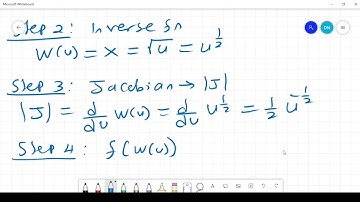 Microsoft Whiteboard
Step 2: Inverse fn
W(u) = x = √u = u^{1/2}
Step 3: Jacobian → |J|
|J| = d/du W(u) = d/du u^{1/2} = 1/2 u^{-1/2}
Step 4: f(W(u))